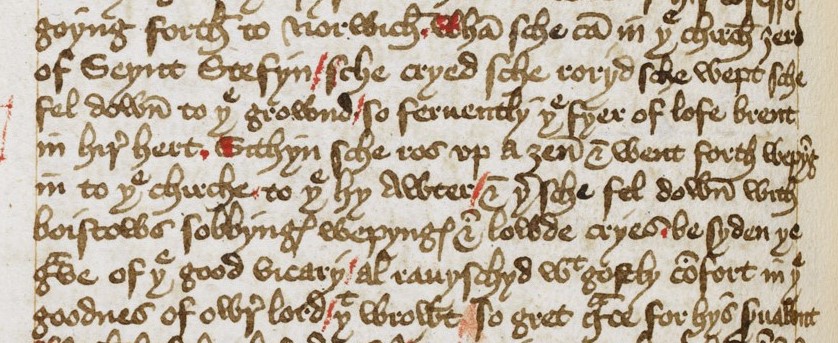 goyng forth to Norwich. Whā sche cā in yͤ chirch ȝerd
of Seynt Stefyn / sche cryed sche roryd sche wept sche
fel down̄ to yͤ grownd / so feruently yͤ fyer of lofe brent
in hir hert. Sithyn sche ros vp a ȝen & went forth wepyḡ
in to yͤ chirche to yͤ hy Awter / & yͬ sche fel down̄ with
boistows sobbyngꝭ wepyngꝭ & lowde cryes. be syden ye
gͣue of yͤ good vicary / al rauyschyd wͭ gostly cōfort in yͤ
goodnes of owr lord / yͭ wrowt so gret gͣce for hys ſuawnt